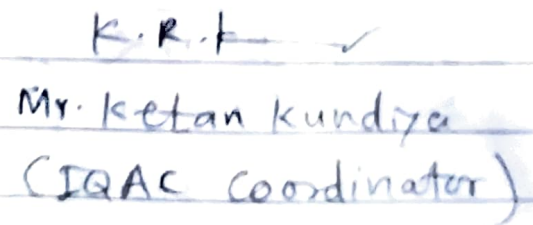 K.R.K
Mr. Ketan Kundiya
(IQAC Coordinator)